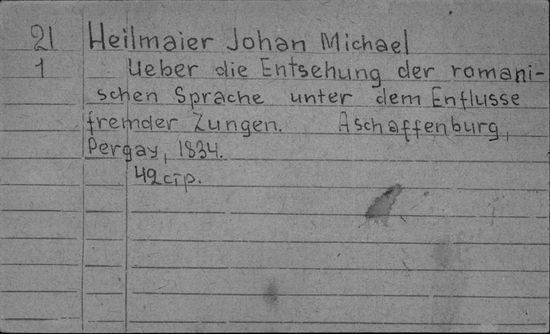 21 Heilmaier Johan Michael
1 Ueber die Entsehung der romani-
schen Sprache unter dem Enflusse
fremder Zungen. Aschaffenburg,
Pergay, 1834.
42 стр.